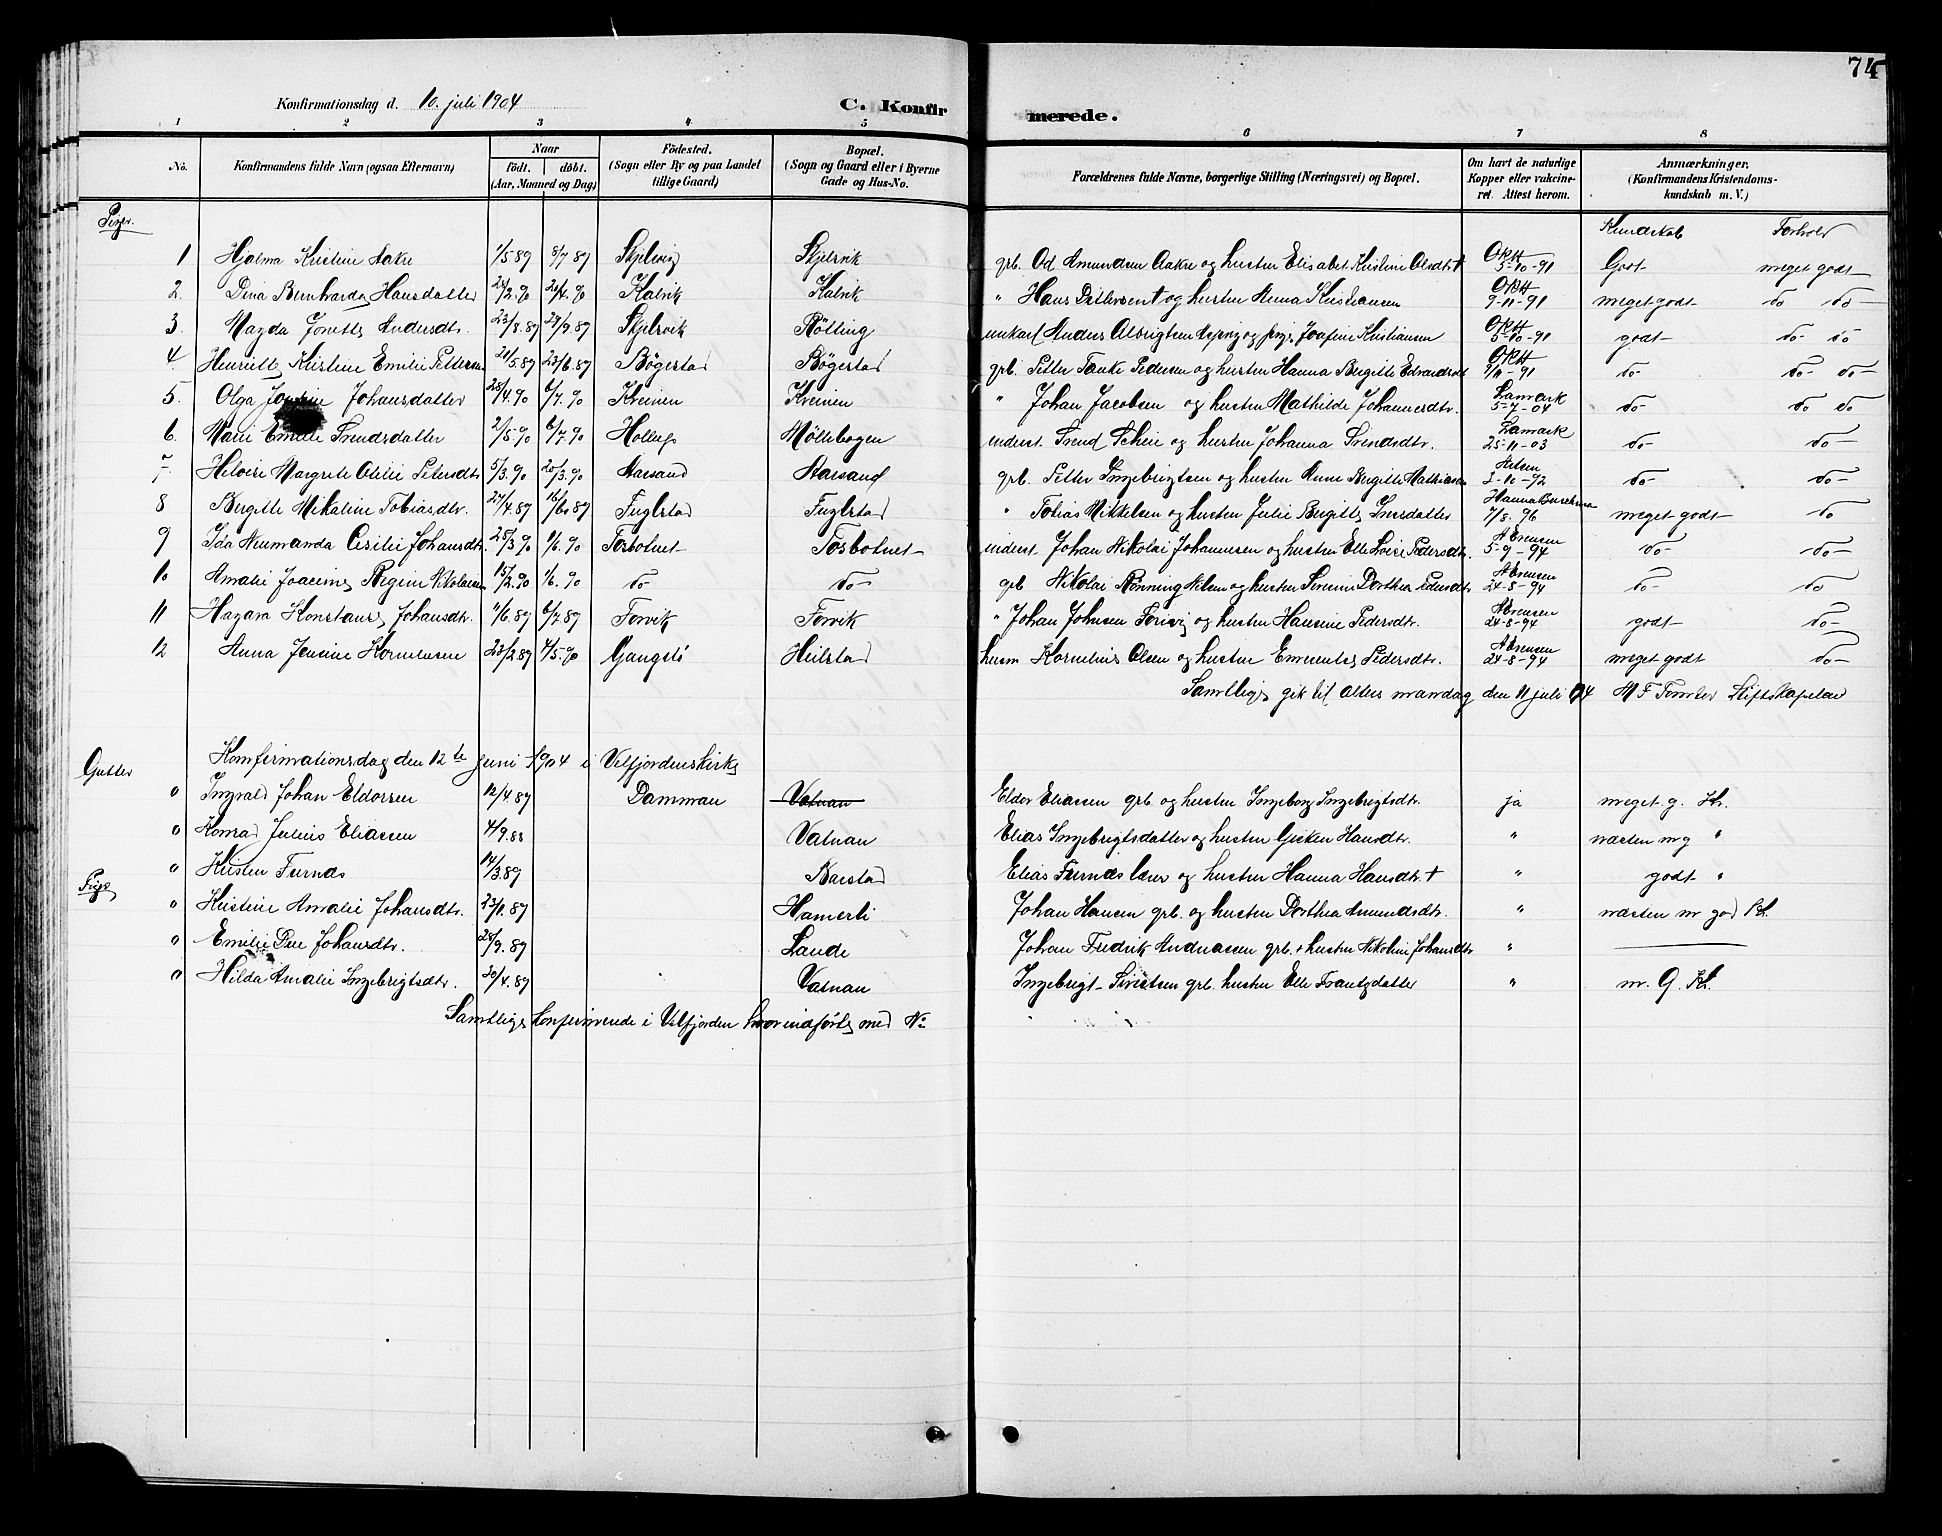 74
Konfirmationsdag d. 10. juli 1904 C. Konfirmerede.
1 2 3 4 5 6 7 8
No. Konfirmandens fulde Navn (ogsaa Efternavn) Naar født. døbt. (Aar, Maaned og Dag) Fødested. (Sogn eller By og paa Landet tillige Gaard) Bopæl. (Sogn og Gaard eller i Byerne Gade og Hus-No.) Forældrenes fulde Navne, borgerlige Stilling (Næringsvei) og Bopæl. Om havt de naturlige Kopper eller vakcineret. Attest herom. Anmærkninger. (Konfirmandens Kristendomskundskab m. V.)
Piger. Kundskab Forhold
1 Hjalma Kristine Aakre 1/5 89 8/7 89 Skjelvig Skjelvik grb. Od Amundsen Aakre og hustru Elisabet Kristine Olsdtr † 5-10-91 Godt meget godt
2. Dina Bernharda Hansdatter 24/2 90 20/4 90 Kalvik Kalvik " Hans Ditlevsen † og hustru Anna Kristiansen 9-11-91 meget godt do do
3. Magda Jonette Andersdtr. 23/8.89 29/9.89 Skjelsvik Røtting unkarl Anders Albrigtsen og pige Josefine Kristiansen 5-10-91 godt do do
4. Henriette Kristine Emilie Pettersen 21/5.89 23/6.89 Bøgestad Bøgestad grb. Petter Tanke Pedersen og hustru Hanna Birgitte Edvardsdt 9/11-91 do do do
5. Olga Johansdatter 28/4.90 6/7.90 Kveinen Kveinen " Johan Jacobsen og hustru Mathilde Johannesdtr. Lamark 5-7-04 do do do
6. Marie Emelie Svendsdatter 2/5.90 6/7.90 Hollup Møllebogen inderst. Svend Scheie og hustru Johanna Svendsdtr. Lamark 25-11-03 do do
7. Heloise Margrete Otilie Petersdtr 5/3.90 20/3.90 Aarsand Aarsand grb. Petter Ingebrigtsen og hustru Anne Bergitte Mathiasen 3-10-92 do do
8 Bergitte Mikaline Tobiasdtr. 27/4.89 16/6 89 Fuglstad Fuglstad " Tobias Mikkelsen og hustru Julie Bergitte Iversdatter 7/8. 96 meget godt do
9 Ida Neumanda Cesilie Johansdtr. 25/3 90 1/6.90 Tosbotnet Tosbotnet inderst. Johan Nikolai Johannesen og hustru Elle Lovise Pedersdtr. A Evensen 5-9-94 do do
10 Amalie Joacime Regine Nikolaisen 15/2.90 1/6.90 do do grb Nikolai Rønning Nilsen og hustru Serenine Dorthea Pedersdtr A Evensen 24-8-94 do do
11 Hagara Konstanse Johansdtr. 11/6.89 6/7.89 Forvik Forvik " Johan Johnsen Forvig og hustru Hansine Pedersdtr. A Evensen 24-8-94 godt do
12 Anna Jensine Korneliusen 23/2.89 4/5.90 Gangstø Heilstad husm Kornelius Olsen og hustru Emerentse Pedersdtr. A Evensen 24-8-94 meget godt do
Samtlige gik til Alters mandag den 11 juli 04 Stiftskapelan
Gutter Komfirmationsdag den 12te juni 1904 i Velfjordens kirke
" Ingvald Johan Eldorsen 12/4.89 Damman Vatnan Eldor Eliassen grb. og hustru Ingeborg Ingebrigtsdtr. ja meget g. Kr.
" Konrad Julius Eliassen 4/9.88 Vatnan Elias Ingebrigtsdatter og hustru Gieken Hansdtr. " næsten mg "
" Kristen Furnes 14/3.89 Barstad Elias Furnes lærer og hustru Hanna Hansdtr. † " godt "
Piger " Kristine Amalie Johansdtr. 23/8.89 Hamerli Johan Hansen grb. og hustru Dorthea Amundsdtr. " næsten m god Kr.
" Emilie Johansdtr. 28/9.89 Lande Johan Fredrik Andreassen grb. + hustru Nikoline Johansdtr "
" Hilda Amalie Ingebrigtsdtr. 20/4.89 Vatnan Ingebrigt Sivertsen grb. hustru Elle Frantzdatter " m. G. Kr.
Samtlige konfirmerede i Velfjorden hvor indførte med No